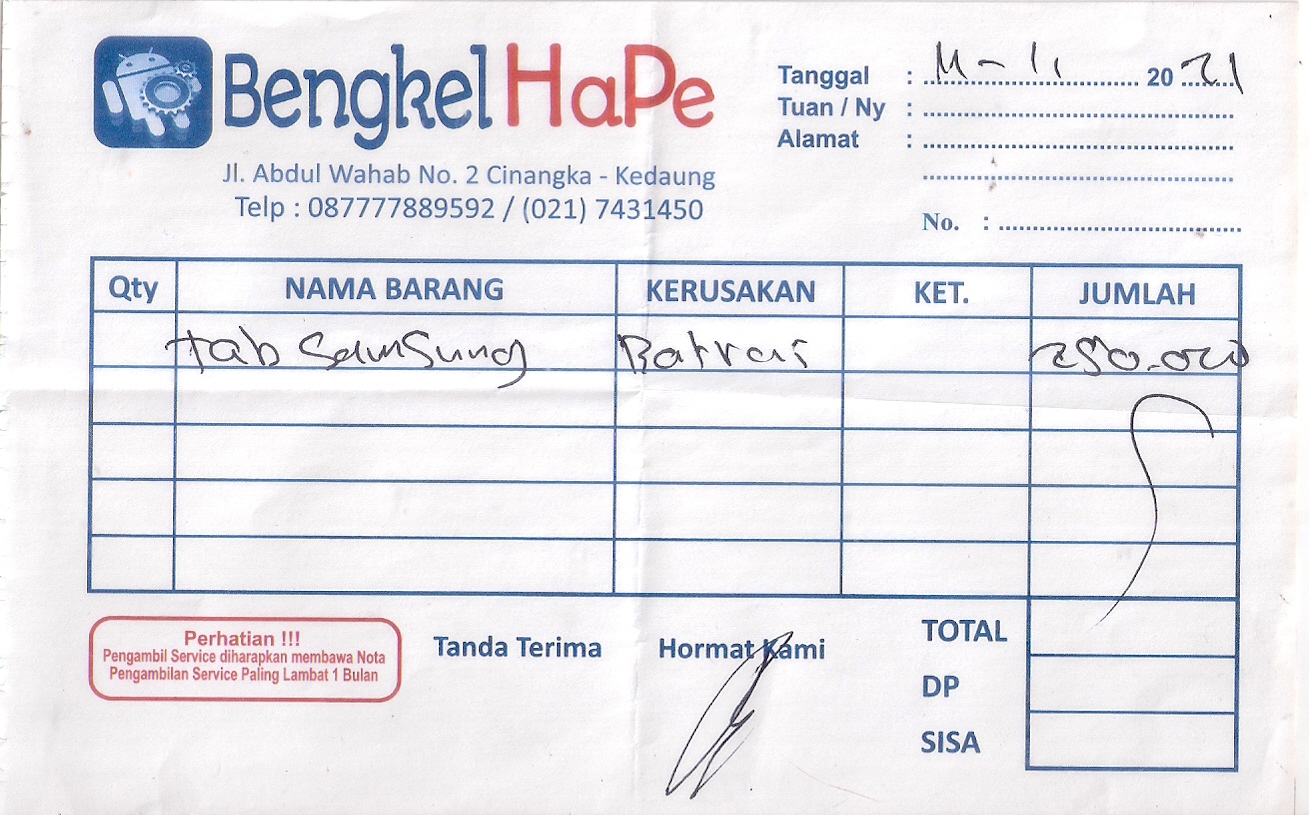 Bengkel HaPe
Jl. Abdul Wahab No. 2 Cinangka - Kedaung
Telp : 087777889592 / (021) 7431450
Tanggal : 11 - 11 2021
Tuan / Ny :
Alamat :
No. :
Qty NAMA BARANG KERUSAKAN KET. JUMLAH
tab Samsung Batrai 250.000
Perhatian !!!
Pengambil Service diharapkan membawa Nota
Pengambilan Service Paling Lambat 1 Bulan
Tanda Terima
Hormat Kami
TOTAL
DP
SISA